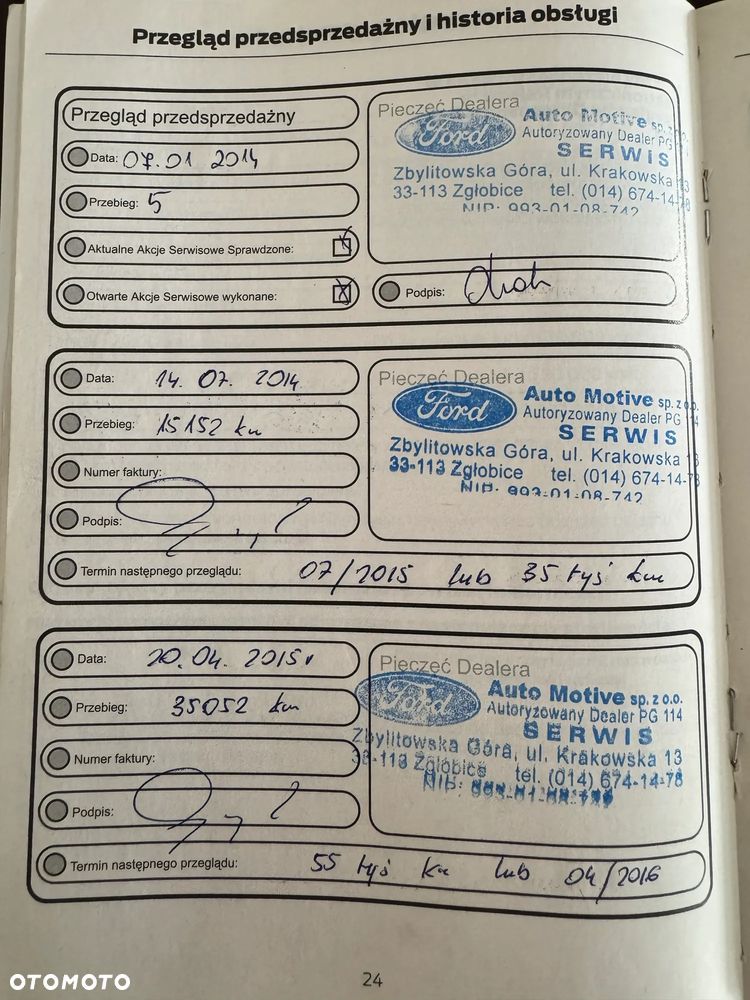 Przegląd przedsprzedażny i historia obsługi
Przegląd przedsprzedażny
Data: 07.01 2014
Przebieg: 5
Aktualne Akcje Serwisowe Sprawdzone:
Otwarte Akcje Serwisowe wykonane:
Pieczęć Dealera
Ford
Auto Motive sp. z o.o.
Autoryzowany Dealer PG
SERWIS
Zbylitowska Góra, ul. Krakowska 13
33-113 Zgłobice tel. (014) 674-14-78
NIP: 993-01-08-742
Podpis:
Data: 14. 07. 2014
Przebieg: 15152 km
Numer faktury:
Podpis:
Termin następnego przeglądu: 07/2015 lub 35 tyś km
Pieczęć Dealera
Ford
Auto Motive sp. z o.o.
Autoryzowany Dealer PG 114
SERWIS
Zbylitowska Góra, ul. Krakowska 13
33-113 Zgłobice tel. (014) 674-14-78
NIP: 993-01-08-742
Data: 20.04. 2015r
Przebieg: 35052 km
Numer faktury:
Podpis:
Termin następnego przeglądu: 55 tyś km lub 04/2016
Pieczęć Dealera
Ford
Auto Motive sp. z o.o.
Autoryzowany Dealer PG 114
SERWIS
Zbylitowska Góra, ul. Krakowska 13
33-113 Zgłobice tel. (014) 674-14-78
NIP:
24
OTOMOTO